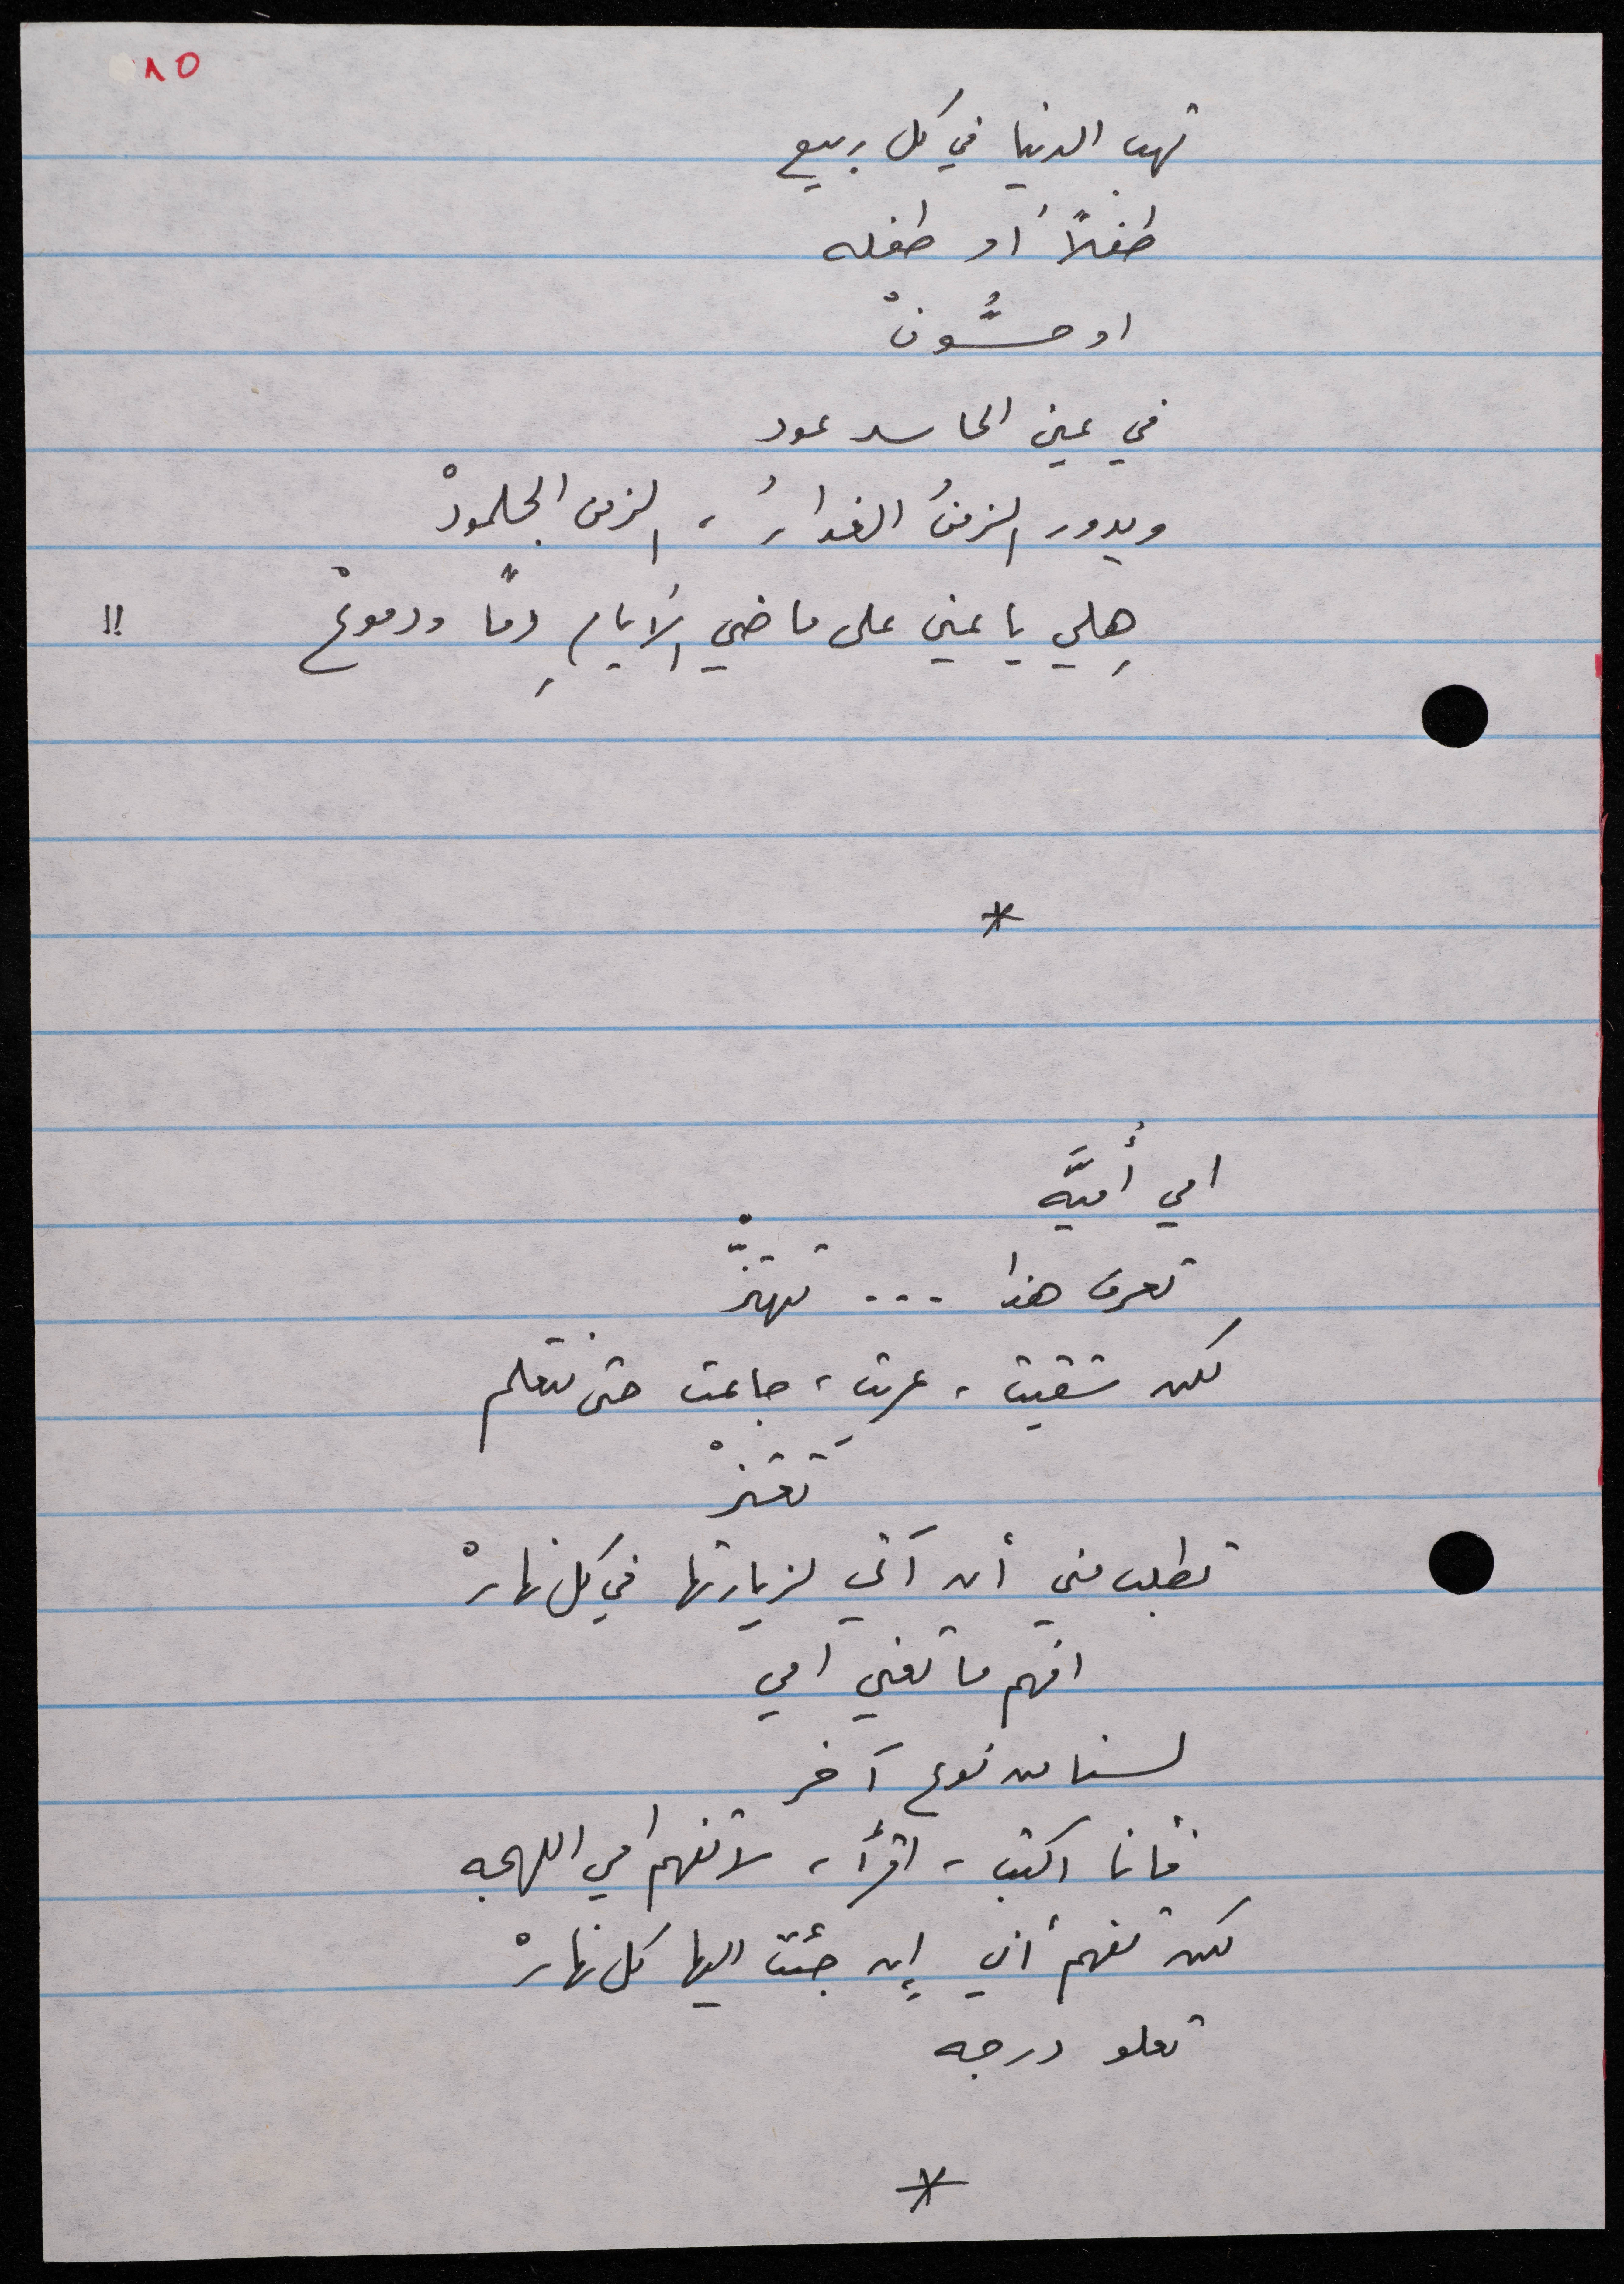 ١٥
تهب الدنيا في كل ربيع
طفلاً أو طفله
او حسُّونْ
في عين الحاسد عود
ويدور الزمنُ الغدارُ ، الزمن الجلمودْ
هِلي يا عيني على ماضي الأيامِ دمًا ودموعْ !!
*
امي أُميَّه
تعرف هذا ... تهتزّْ
لكن شقيت ، عريت ، جاعت حتى نتعلم
تَعتزْ
تطلب مني أن آتي لزيارتها في كل نهارْ
افهم ما تعني امي
لسنا من نوع آخر
فأنا اكتب ، اقرأ ، لا تفهم امي اللهجه
لكن تفهم أني إن جئت اليها كل نهارْ
تعلو درجه
*